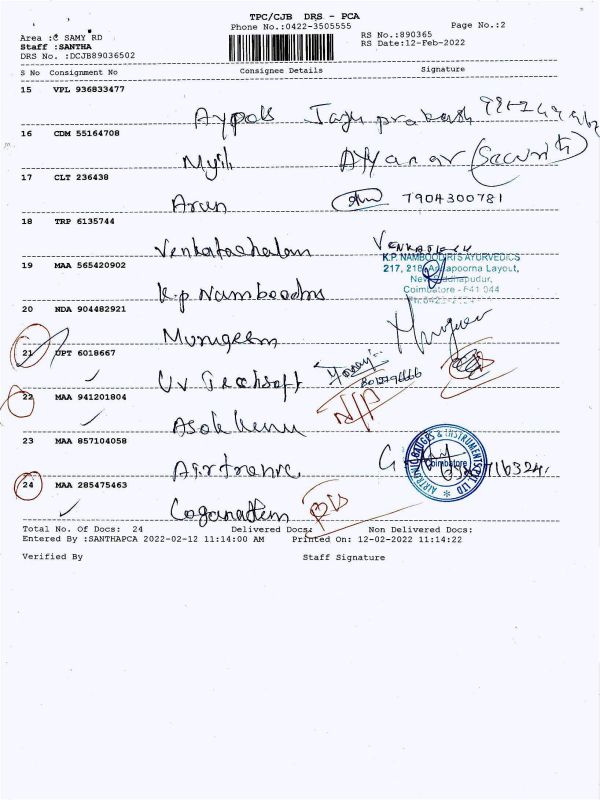 TPC/CJB DRS - PCA
Phone No.:0422-3505555
Page No.:2
Area :C SAMY RD
Staff :SANTHA
DRS No. :DCJB89036502
RS No.:890365
RS Date:12-Feb-2022
S No Consignment No Consignee Details Signature
15 VPL 936833477
Aypols
16 CDM 55164708
Myil Ayyanar (Security)
17 CLT 236438
Arun 7904300781
18 TRP 6135744
Venkatachalam
19 MAA 565420902
K.P. NAMBOODIRI'S AYURVEDICS
217, 218, Annapoorna Layout,
Coimbatore - 641 044
K.p Namboodris
20 NDA 904482921
Murugesm
21 UPT 6018667
8015796666
22 MAA 941201804
23 MAA 857104058
AIRTRONIC GAUGES & INSTRUMENTS PVT. LTD
Coimbatore
24 MAA 285475463
Total No. Of Docs: 24 Delivered Docs: Non Delivered Docs:
Entered By :SANTHAPCA 2022-02-12 11:14:00 AM Printed On: 12-02-2022 11:14:22
Verified By Staff Signature